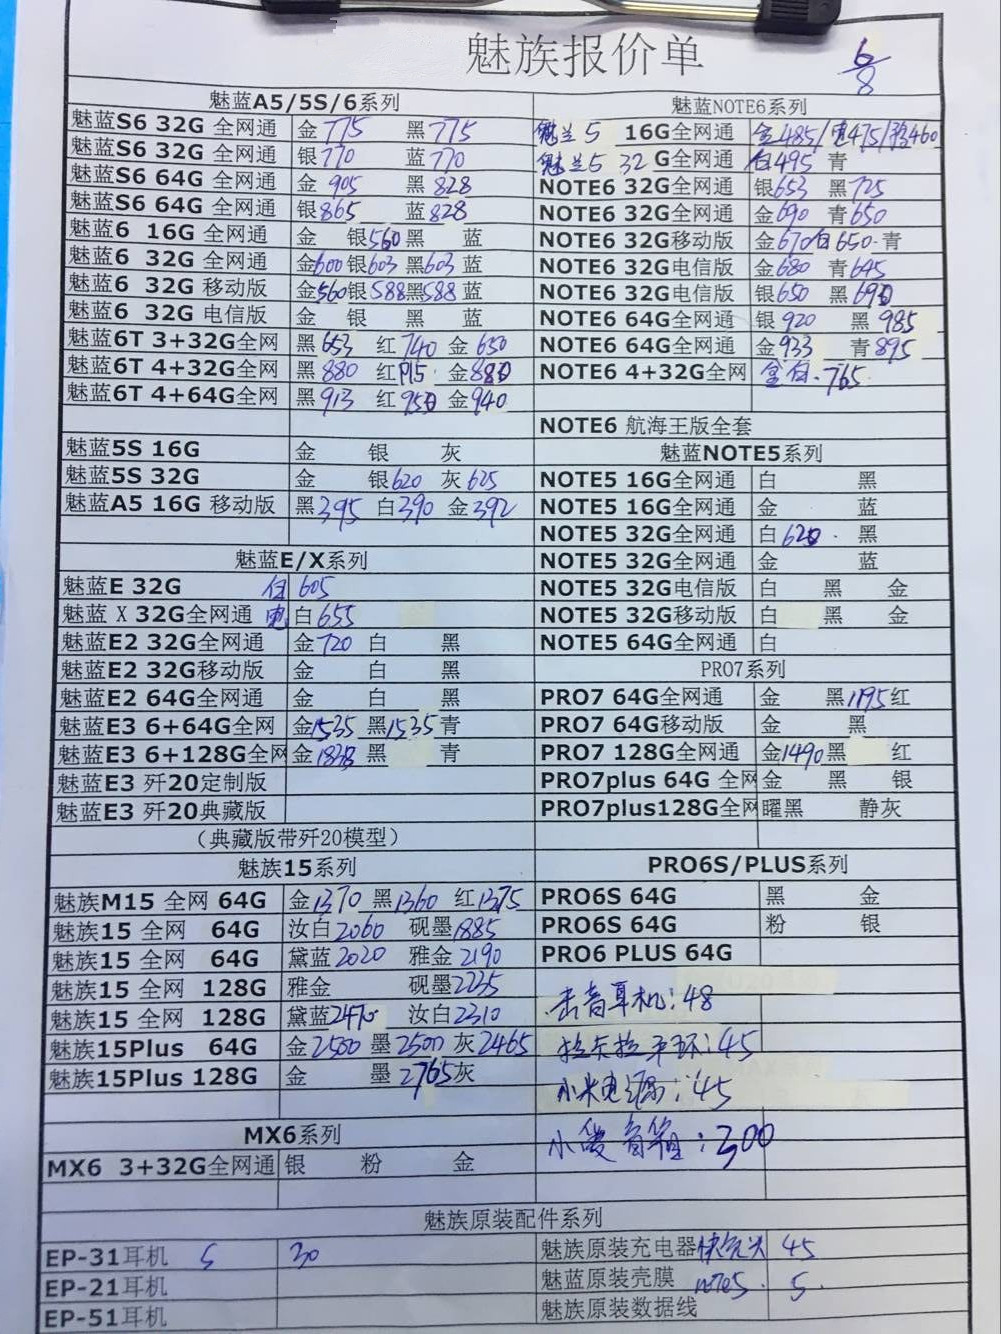 魅族报价单
6/8
魅蓝A5/5S/6系列
魅蓝S6 32G 全网通 金775 黑775
魅蓝S6 32G 全网通 银770 蓝770
魅蓝S6 64G 全网通 金905 黑828
魅蓝S6 64G 全网通 银865 蓝828
魅蓝6 16G 全网通 金 银560 黑 蓝
魅蓝6 32G 全网通 金600 银603 黑603 蓝
魅蓝6 32G 移动版 金560 银588 黑588 蓝
魅蓝6 32G 电信版 金 银 黑 蓝
魅蓝6T 3+32G全网 黑653 红740 金650
魅蓝6T 4+32G全网 黑880 红915 金880
魅蓝6T 4+64G全网 黑913 红950 金940
魅蓝5S 16G 金 银 灰
魅蓝5S 32G 金 银620 灰625
魅蓝A5 16G 移动版 黑395 白390 金392
魅蓝E/X系列
魅蓝E 32G 白 605
魅蓝 X 32G全网通 电 白655
魅蓝E2 32G全网通 金720 白 黑
魅蓝E2 32G移动版 金 白 黑
魅蓝E2 64G全网通 金 白 黑
魅蓝E3 6+64G全网 金1535 黑1535 青
魅蓝E3 6+128G全网 金1828 黑 青
魅蓝E3 歼20定制版
魅蓝E3 歼20典藏版
(典藏版带歼20模型)
魅族15系列
魅族M15 全网 64G 金1370 黑1360 红1375
魅族15 全网 64G 汝白2060 砚墨1885
魅族15 全网 64G 黛蓝2020 雅金2190
魅族15 全网 128G 雅金 砚墨2235
魅族15 全网 128G 黛蓝2470 汝白2310
魅族15Plus 64G 金2500 墨2500 灰2465
魅族15Plus 128G 金 墨2765 灰
MX6系列
MX6 3+32G全网通 银 粉 金
魅蓝NOTE6系列
魅兰5 16G全网通 金485/电475/移460
魅兰5 32 G全网通 白495 青
NOTE6 32G全网通 银653 黑725
NOTE6 32G全网通 金690 青650
NOTE6 32G移动版 金670 白650 青
NOTE6 32G电信版 金680 青645
NOTE6 32G电信版 银650 黑690
NOTE6 64G全网通 银920 黑985
NOTE6 64G全网通 金933 青895
NOTE6 4+32G全网 金白 765
NOTE6 航海王版全套
魅蓝NOTE5系列
NOTE5 16G全网通 白 黑
NOTE5 16G全网通 金 蓝
NOTE5 32G全网通 白620 黑
NOTE5 32G全网通 金 蓝
NOTE5 32G电信版 白 黑 金
NOTE5 32G移动版 白 黑 金
NOTE5 64G全网通 白
PRO7系列
PRO7 64G全网通 金 黑1195 红
PRO7 64G移动版 金 黑
PRO7 128G全网通 金1490 黑 红
PRO7plus 64G 全网 金 黑 银
PRO7plus128G全网 曜黑 静灰
PRO6S/PLUS系列
PRO6S 64G 黑 金
PRO6S 64G 粉 银
PRO6 PLUS 64G
击音耳机:48
拉卡拉手环:45
小米电源:45
小爱音箱:300
魅族原装配件系列
EP-31耳机 S 30 魅族原装充电器 快充头 45
EP-21耳机 魅蓝原装壳膜 note5 5
EP-51耳机 魅族原装数据线